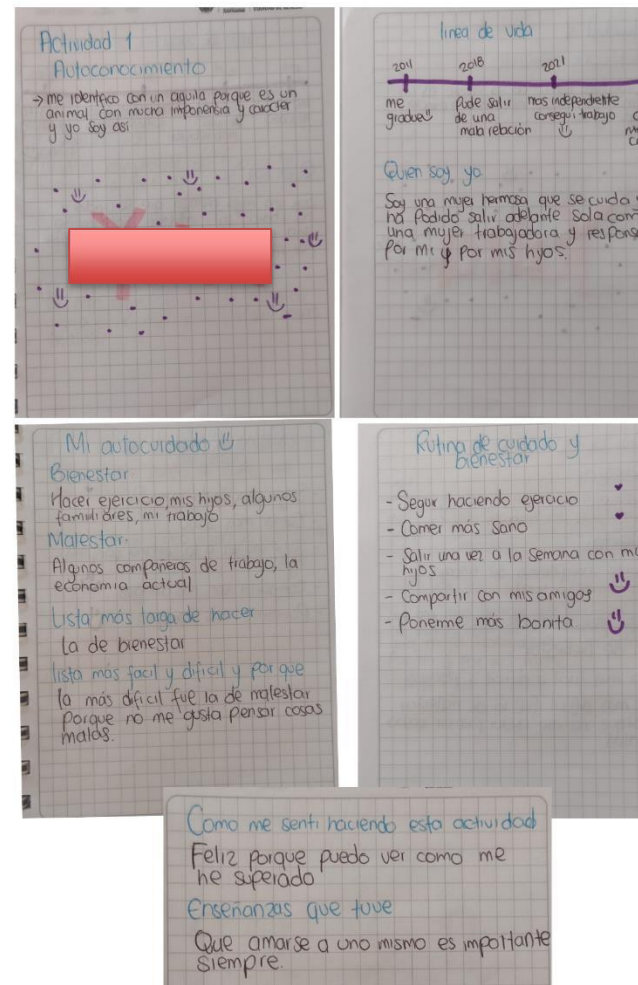 Actividad 1
Autoconocimiento
→ me identifico con un aguila porque es un
animal con mucha imponensia y caracter
y yo soy asi
linea de vida
2011 2018 2021
me
gradue
Pude salir
de una
mala relación
mas independiente
consegui trabajo
Quien soy yo
Soy una mujer hermosa que se cuida
ha podido salir adelante sola com
una mujer trabajadora y respons
por mi y por mis hijos.
Mi autocuidado
Bienestar
Hacer ejercicio, mis hijos, algunos
familiares, mi trabajo
Malestar:
Algunos compañeros de trabajo, la
economia actual
Lista más larga de hacer
La de bienestar
lista más facil y dificil y por que
la más dificil fue la de malestar
Porque no me gusta pensar cosas
malas.
Rutina de cuidado y
bienestar
- Seguir haciendo ejercicio
- Comer más sano
- Salir una vez a la semana con m
hijos
- Compartir con mis amigos
- Ponerme más bonita
Como me senti haciendo esta actividad
Feliz porque puedo ver como me
he superado
Enseñanzas que tuve
Que amarse a uno mismo es importante
siempre.